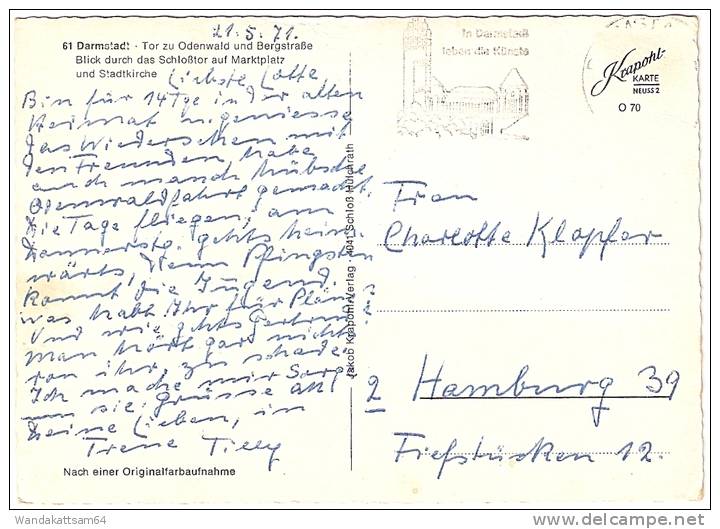 21.5.71.
61 Darmstadt · Tor zu Odenwald und Bergstraße
Blick durch das Schloßtor auf Marktplatz
und Stadtkirche
Liebste Lotte,
Bin für 14 Tge in der alten
Heimat u. geniesse
das Wiedersehen mit
den Freunden, habe
auch manch hübsche
Odenwaldfahrt gemacht.
Die Tage fliegen, am
Donnerstg. gehts heim-
wärts, denn Pfingsten
kommt die Jugend.
was habt Ihr für Pläne
Und wie gehts
Man hört gar nichts
von ihr, zu schade
Ich mache mir Sorg
um sie, grüsse all
Deine Lieben, in
Treue Tilly
Nach einer Originalfarbaufnahme
Jakob Krapohl-Verlag · 4041 Schloß Hülchrath
In Darmstadt
leben die Künste
Krapohl-
KARTE
NEUSS 2
O 70
Frau
Charlotte Klapfer
2 Hamburg 39
Fiefstücken 12.
Wandakattsam64
delcampe.net